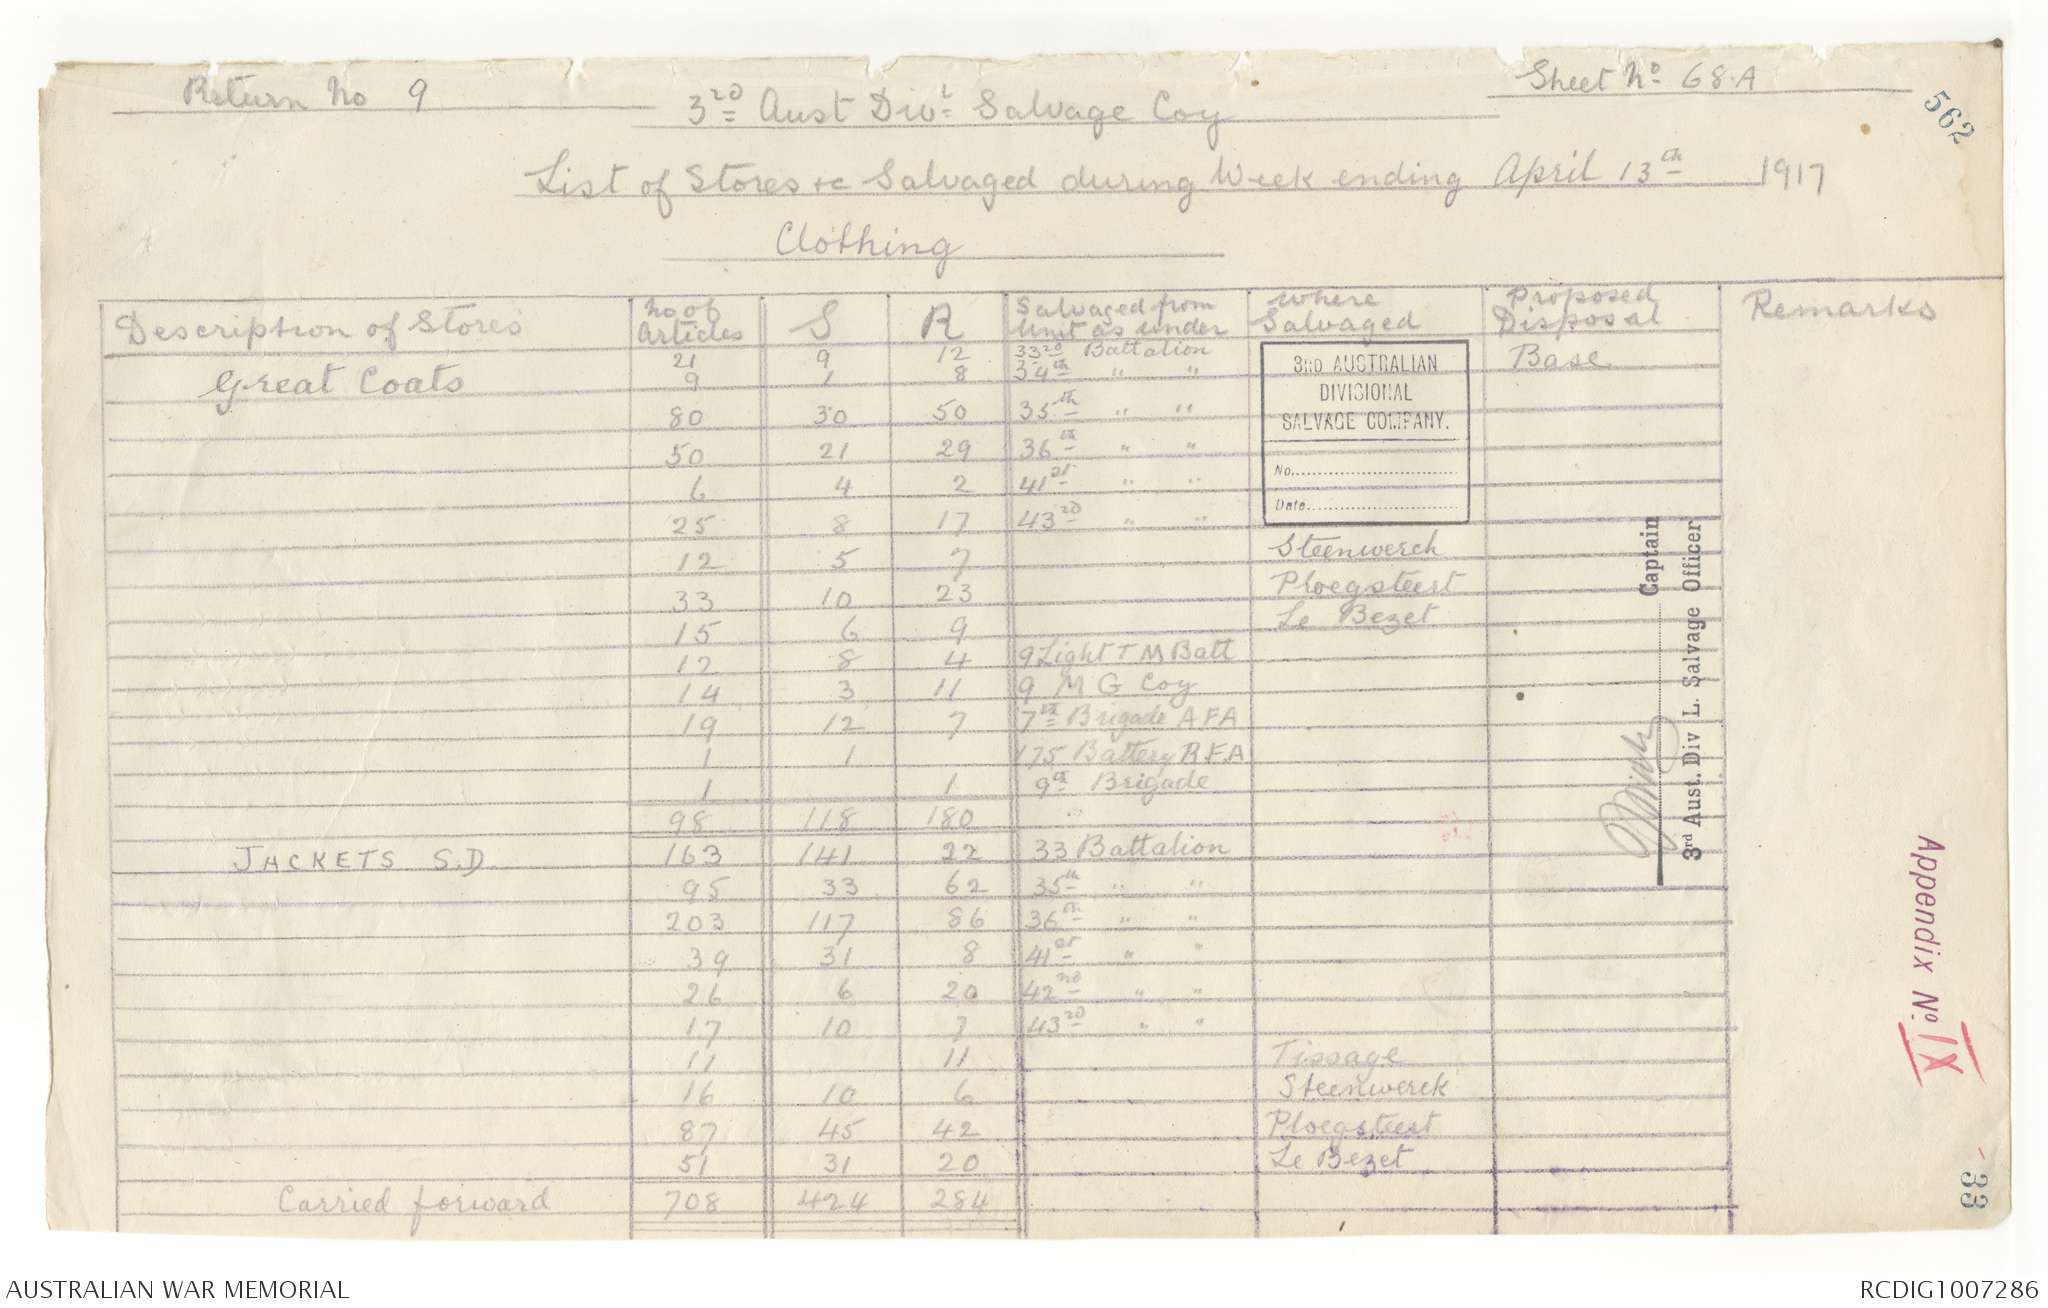 Return No 9
Sheet No. 68.A
562
3RD Aust Divl Salvage Coy
List of Stores &c Salvaged during Week ending April 13th 1917
Clothing
Description of Stores No of Articles S R Salvaged from Unit as under Where Salvaged Proposed Disposal Remarks
Great Coats 21 9 12 33RD Battalion Base
9 1 8 34th " "
80 30 50 35th " "
50 21 29 36th " "
6 4 2 41st " "
25 8 17 43RD " "
12 5 7 Steenwerck
33 10 23 Ploegsteert
15 6 9 Le Bezet
12 8 4 9 Light T M Batt
14 3 11 9 M G Coy
19 12 7 7th Brigade A F A
1 1 175 Battery R.F.A
1 1 9th Brigade
98 118 180
JACKETS S.D 163 141 22 33 Battalion
95 33 62 35th " "
203 117 86 36th " "
39 31 8 41st " "
26 6 20 42ND " "
17 10 7 43RD " "
11 11 Tissage
16 10 6 Steenwerck
87 45 42 Ploegsteert
51 31 20 Le Bezet
Carried forward 708 424 284
3RD AUSTRALIAN
DIVISIONAL
SALVAGE COMPANY.
No.
Date
Captain
3rd Aust. Div L. Salvage Officer
Appendix No. IX
33
AUSTRALIAN WAR MEMORIAL
RCDIG1007286